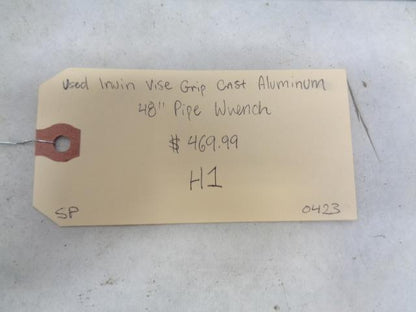 Used Irwin Vise Grip Cast Aluminum
48" Pipe Wrench
$ 469.99
H1
SP 0423